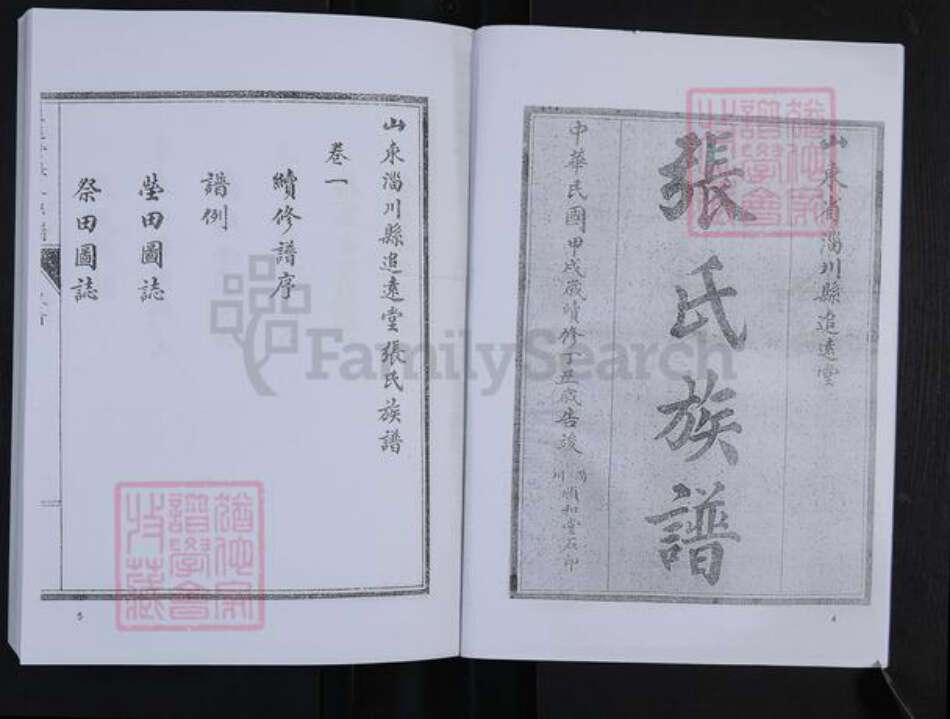 山東省淄川縣追遠堂
張氏族譜
中華民國甲戌歲續修丁丑歲告竣
淄川順和堂石印
4
山東淄川縣追遠堂張氏族譜
卷一
續修譜序
譜例
塋田圖誌
祭田圖誌
5
FamilySearch